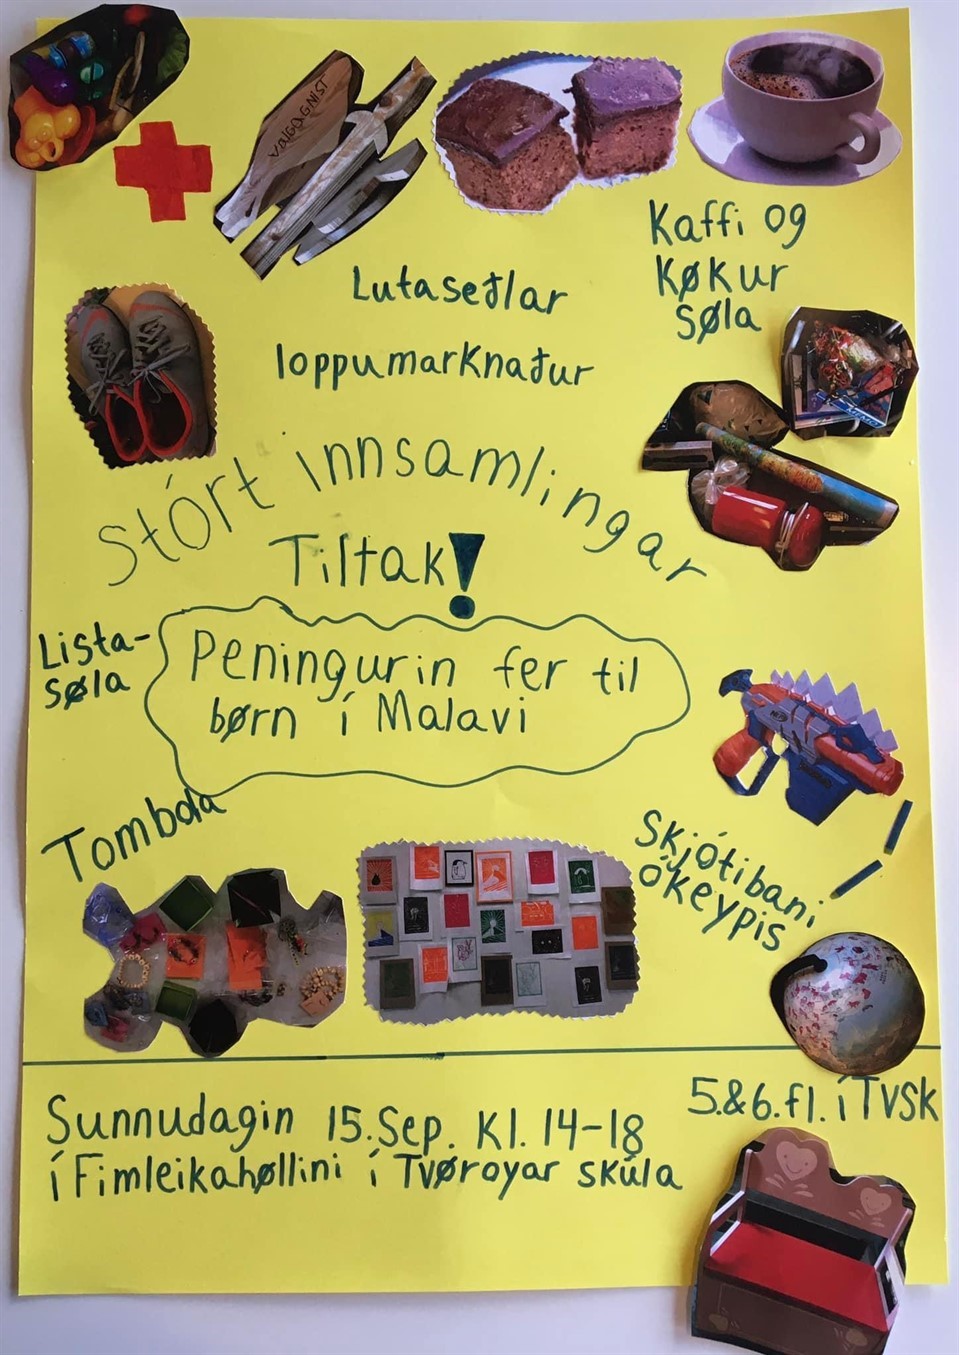 VAGAGNIST
Kaffi og
Køkur
søla
Lutaseðlar
loppumarknaður
Stórt innsamlingar
Tiltak!
Lista-
søla
Peningurin fer til
børn í Malavi
Tombola
Skjótibani
ókeypis
5.&6.fl. í TVSK
Sunnudagin 15.Sep. Kl. 14-18
í Fimleikahøllini í Tvøroyar skúla